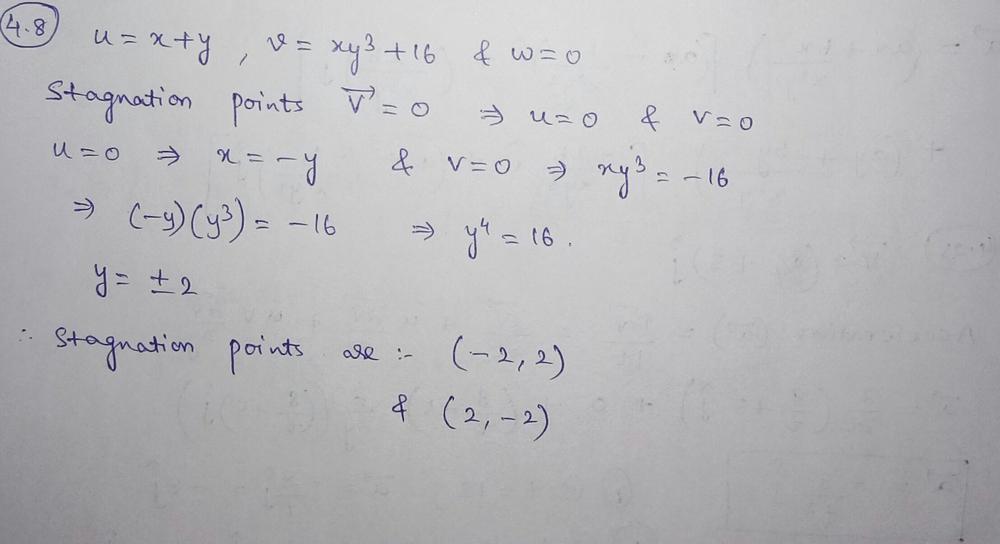 4.8 u = x+y , v = xy³ + 16 & w = 0
Stagnation points V⃗ = 0 ⇒ u = 0 & v = 0
u = 0 ⇒ x = -y & v = 0 ⇒ xy³ = -16
⇒ (-y)(y³) = -16 ⇒ y⁴ = 16 .
y = ± 2
∴ Stagnation points are :- (-2, 2)
& (2, -2)